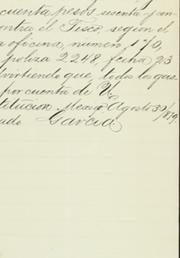 cuenta pesos, sesenta y un
contra el Fisco, según el
a oficina, numero 170,
poliza 2248, fecha 23
dvirtiendo que, todos los gas
por cuenta de U,
titucion. Mexico Agosto 30/879
García